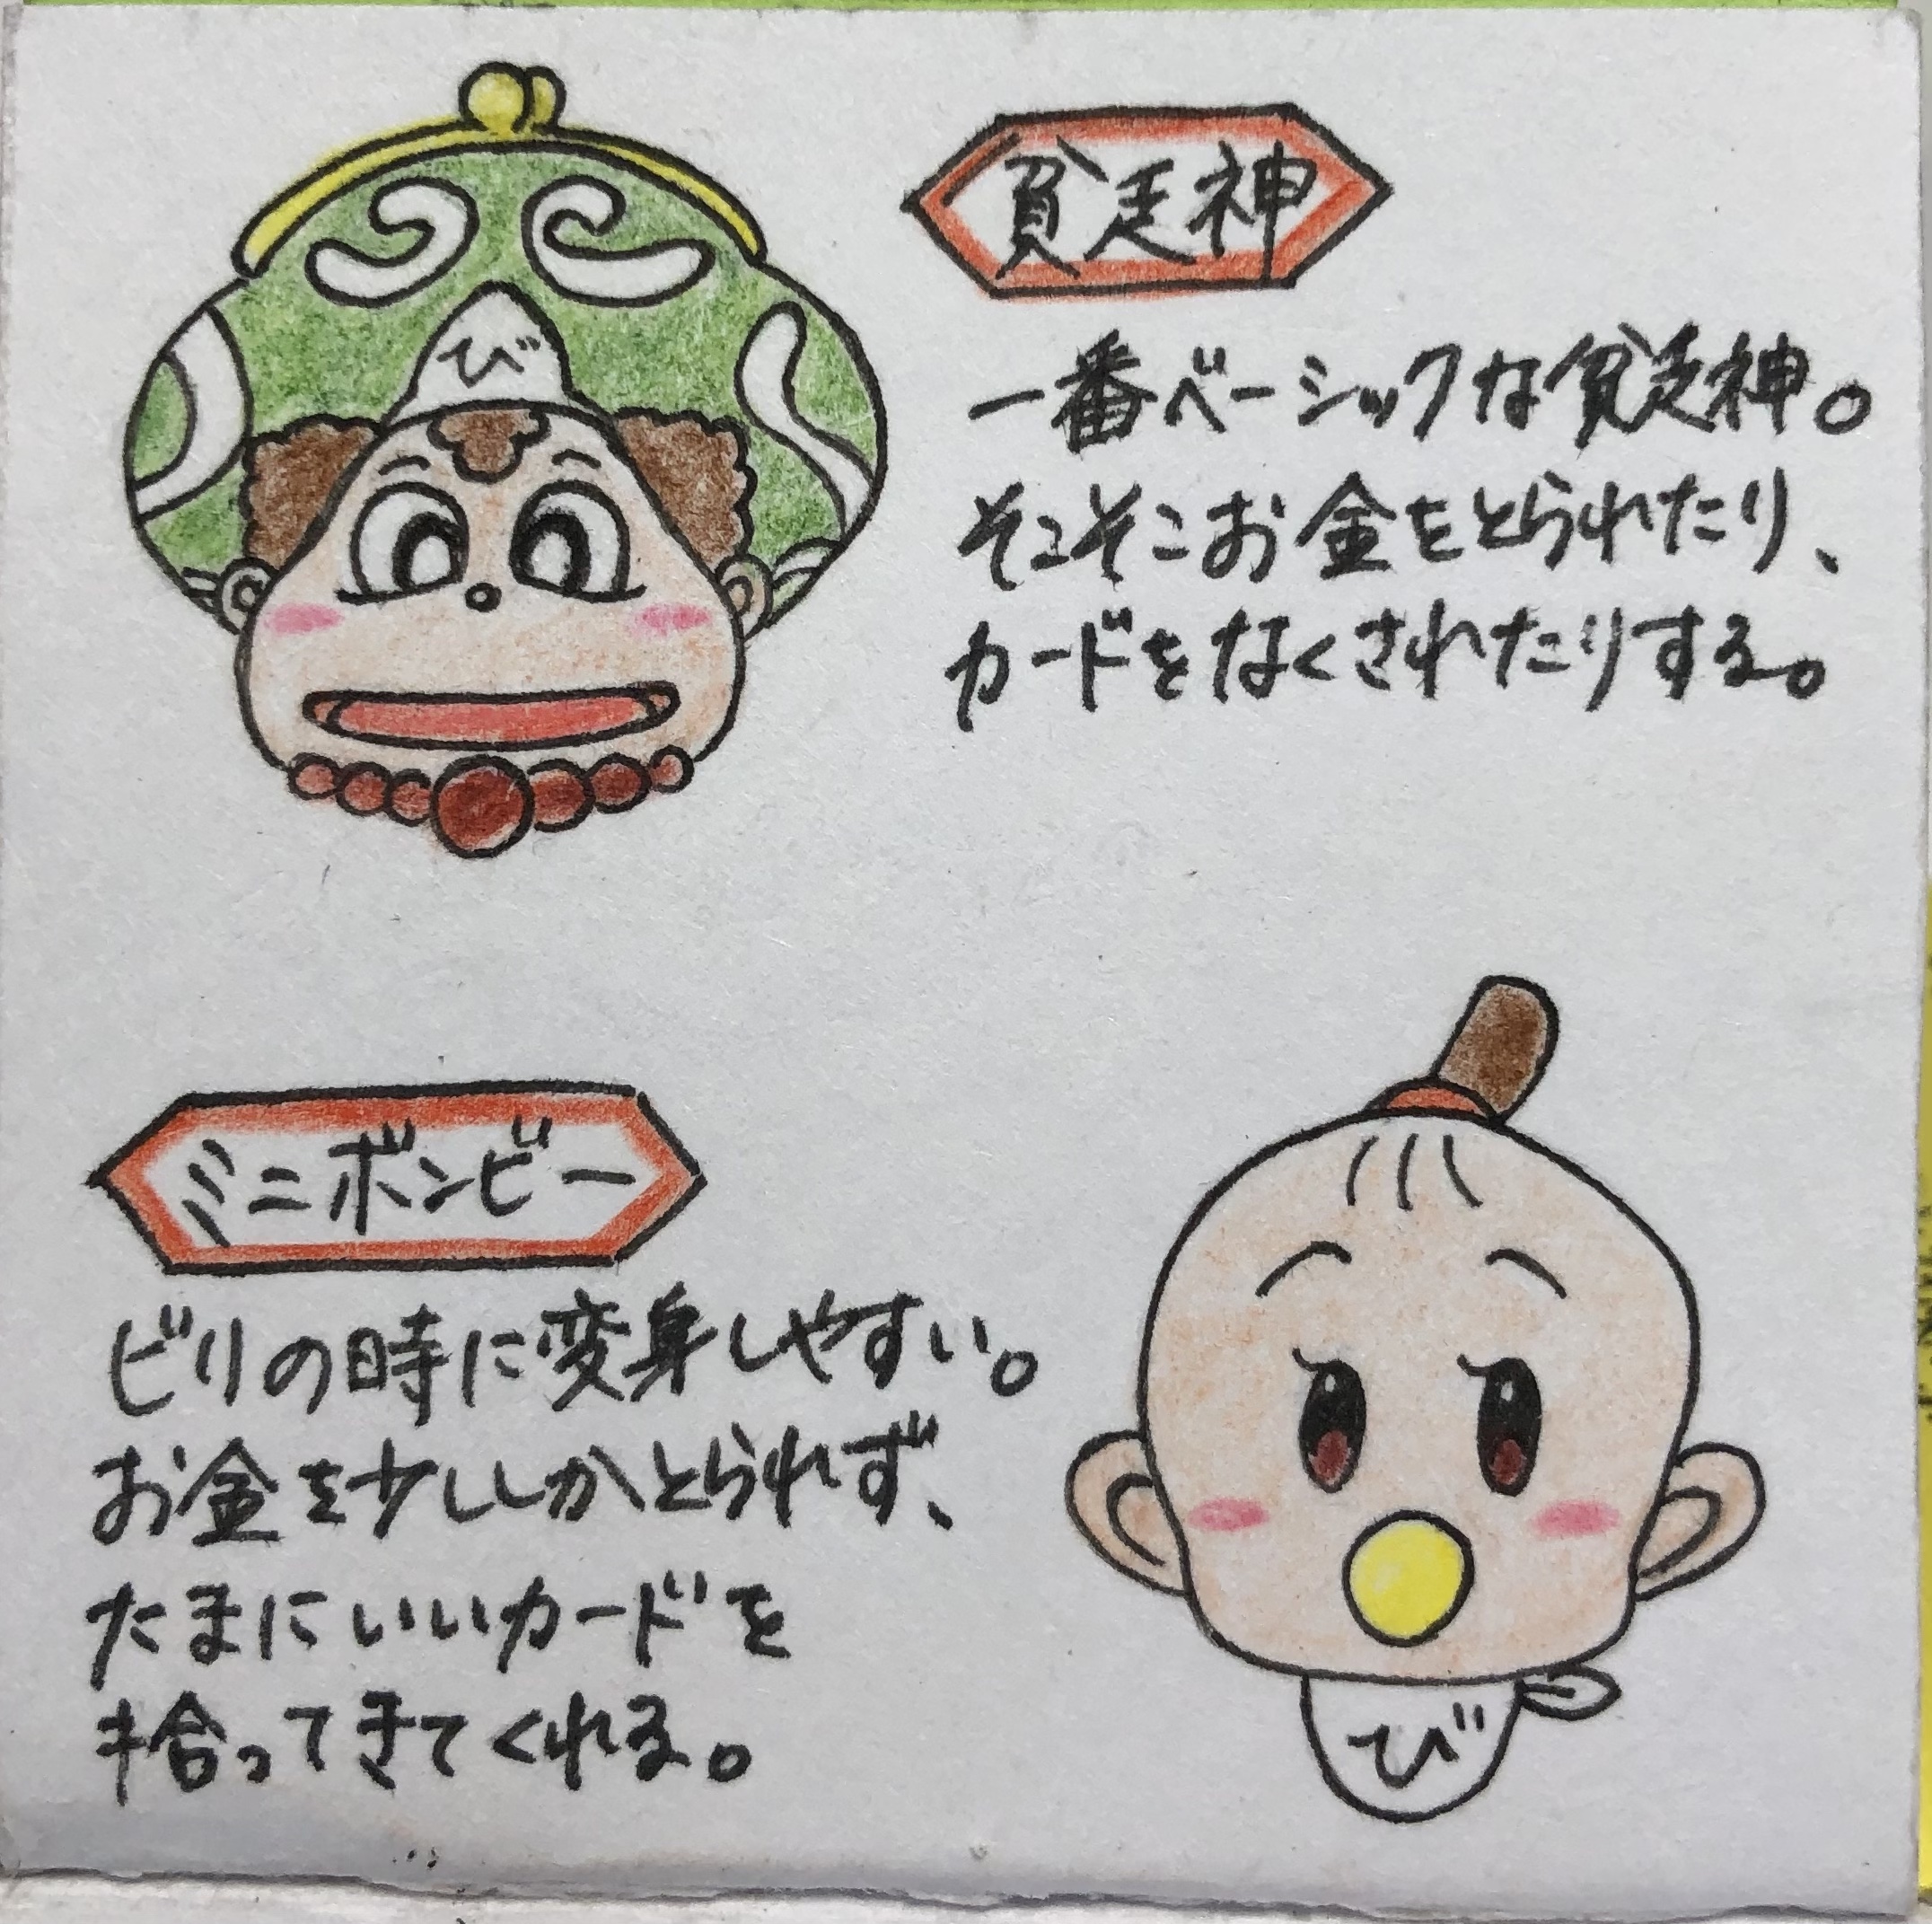 貧乏神
び
一番ベーシックな貧乏神。
そこそこお金をとられたり、
カードをなくされたりする。
ミニボンビー
ビリの時に変身しやすい。
お金を少ししかとられず、
たまにいいカードを
拾ってきてくれる。
び